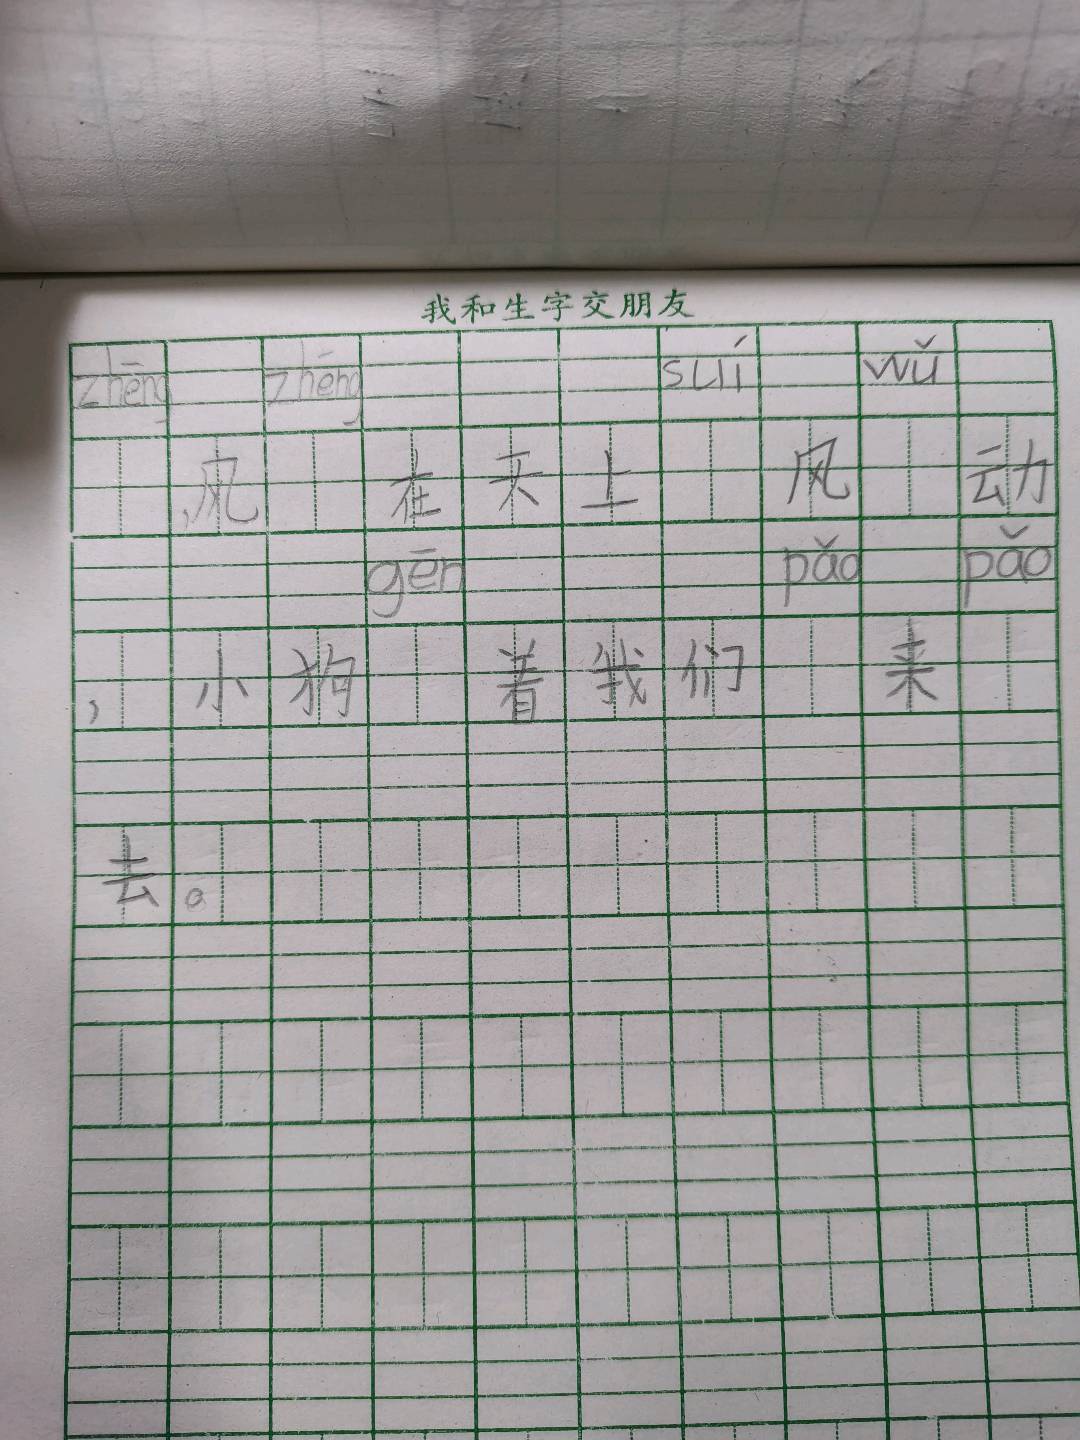 我和生字交朋友
zhēng zhēng suí wǔ
,风 在天上 风 动
gēn pǎo pǎo
,小狗 着我们 来
去。